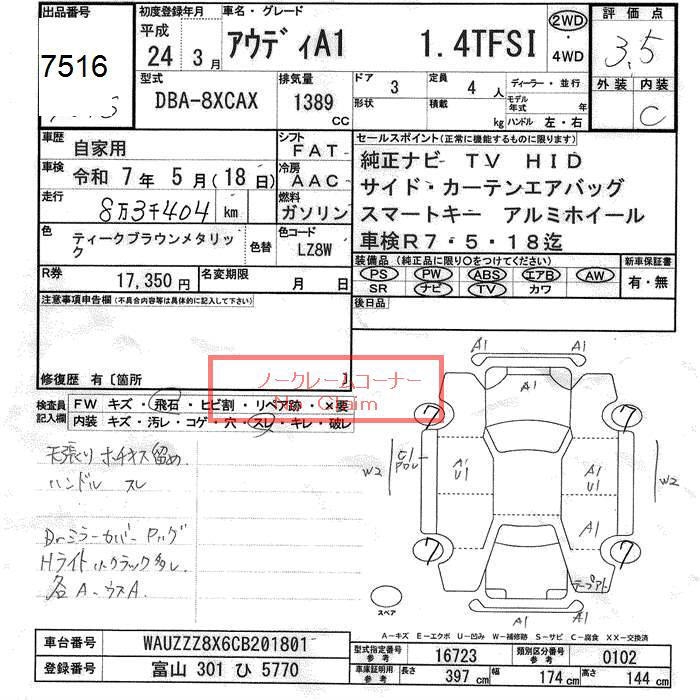 出品番号 初度登録年月 車名・グレード 2WD 評価点
7516 平成 24 3月 アウディA1 1.4TFSI 4WD 3.5
型式 DBA-8XCAX 排気量 1389 CC ドア 3 定員 4人 ディーラー・並行 外装 内装
形状 積載 kg モデル年式 年 C
ハンドル 左・右
車歴 自家用 シフト FAT セールスポイント(正常に機能するものに限ります)
車検 令和 7年 5月(18日) 冷房 AAC 純正ナビ TV HID
走行 8万3千404 km 燃料 ガソリン サイド・カーテンエアバッグ
スマートキー アルミホイール
色 ティークブラウンメタリック 色替 色コード LZ8W 車検R7・5・18迄
装備品(純正品に限り○をつけてください) 新車保証書
R券 17,350円 名変期限 月 日 PS PW ABS エアB AW 有・無
SR ナビ TV カワ
注意事項申告欄(不具合内容等は具体的に記入して下さい) 後日品
修復歴 有〔箇所
ノークレームコーナー
No Claim
検査員記入欄 FW キズ・飛石・ヒビ割・リペア跡・×要
内装 キズ・汚レ・コゲ・穴・スレ・キレ・破レ
天張りホチキス留め
ハンドル スレ
Drミラーカバー
Hライト小クラック多し
各A・ウスA
A1 A1
A1
7 7
W2 A1 U1 A1 U1 W2
A1
7 7
テープアト
A1 A1
スペア
A-キズ E-エクボ U-凹み W-補修跡 S-サビ C-腐食 XX-交換済
車台番号 WAUZZZ8X6CB201801 型式指定番号 参考 16723 類別区分番号 参考 0102
登録番号 富山 301 ひ 5770 車庫証明用 参考 長さ 397 cm 幅 174 cm 高さ 144 cm